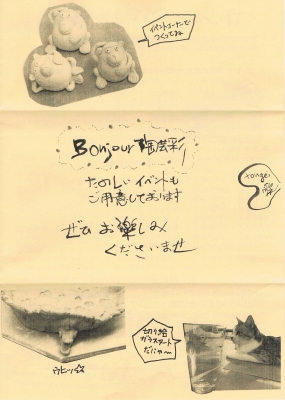 イベントコーナーで
つくってネ
Bonjour 陶芸彩
たのしいイベントも
ご用意しております
ぜひお楽しみ
くださいませ
切り絵
ガラスアート
だにゃ〜
ウヒッ